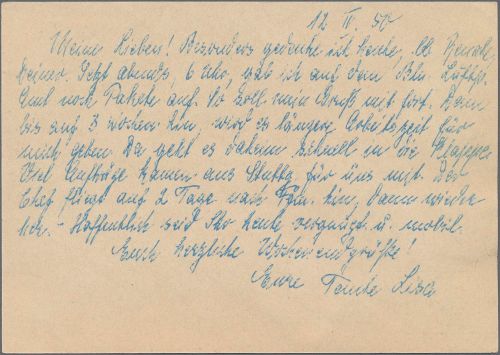 12. II. 50
Meine Lieben! Besonders gedenke ich heute, lb.
Jetzt abends, 6 Uhr, gab ich auf dem Bln.
Amt noch Pakete auf. So soll mein Gruß mit fort. Dann
bis auf 3 Wochen hin, wird es längere Arbeitszeit für
mich geben. Da geht es daheim schnell in die
Viel Aufträge kamen aus Stuttg. für uns mit. Der
Chef fliegt auf 2 Tage nach hin, dann wieder
- Hoffentlich seid Ihr heute vergnügt u. mobil.
Euch herzliche Wochenendgrüße!
Eure Tante Lisa